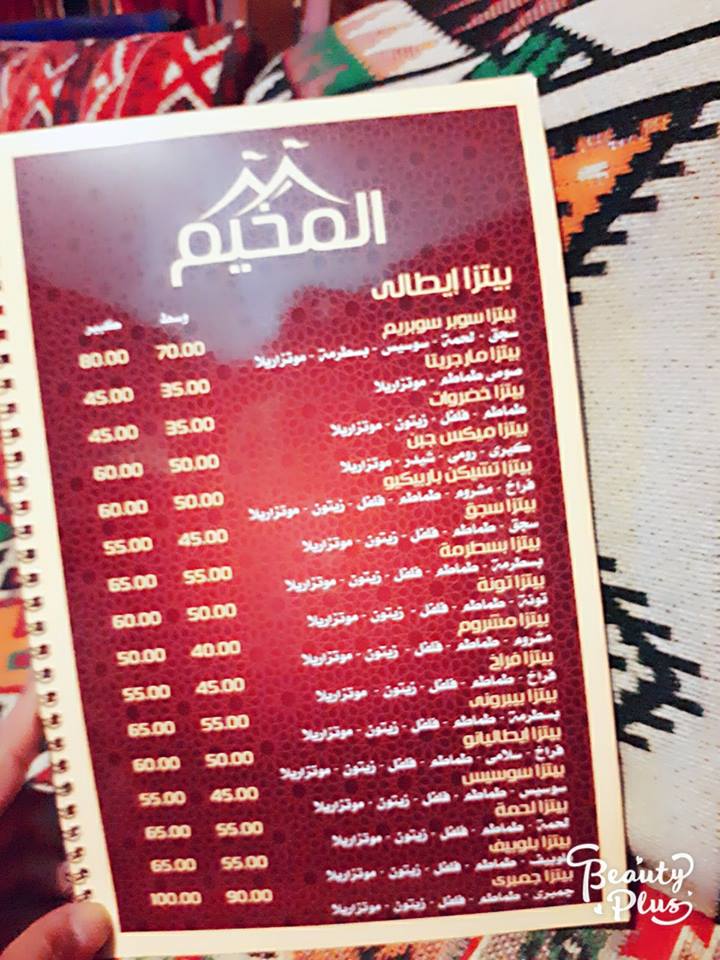 المخيم
بيتزا إيطالى
وسط كبير
بيتزا سوبر سوبريم 70.00 80.00
سجق - لحمة - سوسيس - بسطرمة - موتزاريلا
بيتزا مارجريتا 35.00 45.00
صوص طماطم - موتزاريلا
بيتزا خضروات 35.00 45.00
طماطم - فلفل - زيتون - موتزاريلا
بيتزا ميكس جبن 50.00 60.00
كيرى - رومى - شيدر - موتزاريلا
بيتزا تشيكن باربيكيو 50.00 60.00
فراخ - مشروم - طماطم - فلفل - زيتون - موتزاريلا
بيتزا سجق 45.00 55.00
سجق - طماطم - فلفل - زيتون - موتزاريلا
بيتزا بسطرمة 55.00 65.00
بسطرمة - طماطم - فلفل - زيتون - موتزاريلا
بيتزا تونة 50.00 60.00
تونة - طماطم - فلفل - زيتون - موتزاريلا
بيتزا مشروم 40.00 50.00
مشروم - طماطم - فلفل - زيتون - موتزاريلا
بيتزا فراخ 45.00 55.00
فراخ - طماطم - فلفل - زيتون - موتزاريلا
بيتزا بيبرونى 55.00 65.00
بسطرمة - طماطم - فلفل - زيتون - موتزاريلا
بيتزا إيطاليانو 50.00 60.00
فراخ - سلامى - طماطم - فلفل - زيتون - موتزاريلا
بيتزا سوسيس 45.00 55.00
سوسيس - طماطم - فلفل - زيتون - موتزاريلا
بيتزا لحمة 55.00 65.00
لحمة - طماطم - فلفل - زيتون - موتزاريلا
بيتزا بلوبيف 55.00 65.00
بلوبيف - طماطم - فلفل - زيتون - موتزاريلا
بيتزا جمبرى 90.00 100.00
جمبرى - طماطم - فلفل - زيتون - موتزاريلا
Beauty
Plus